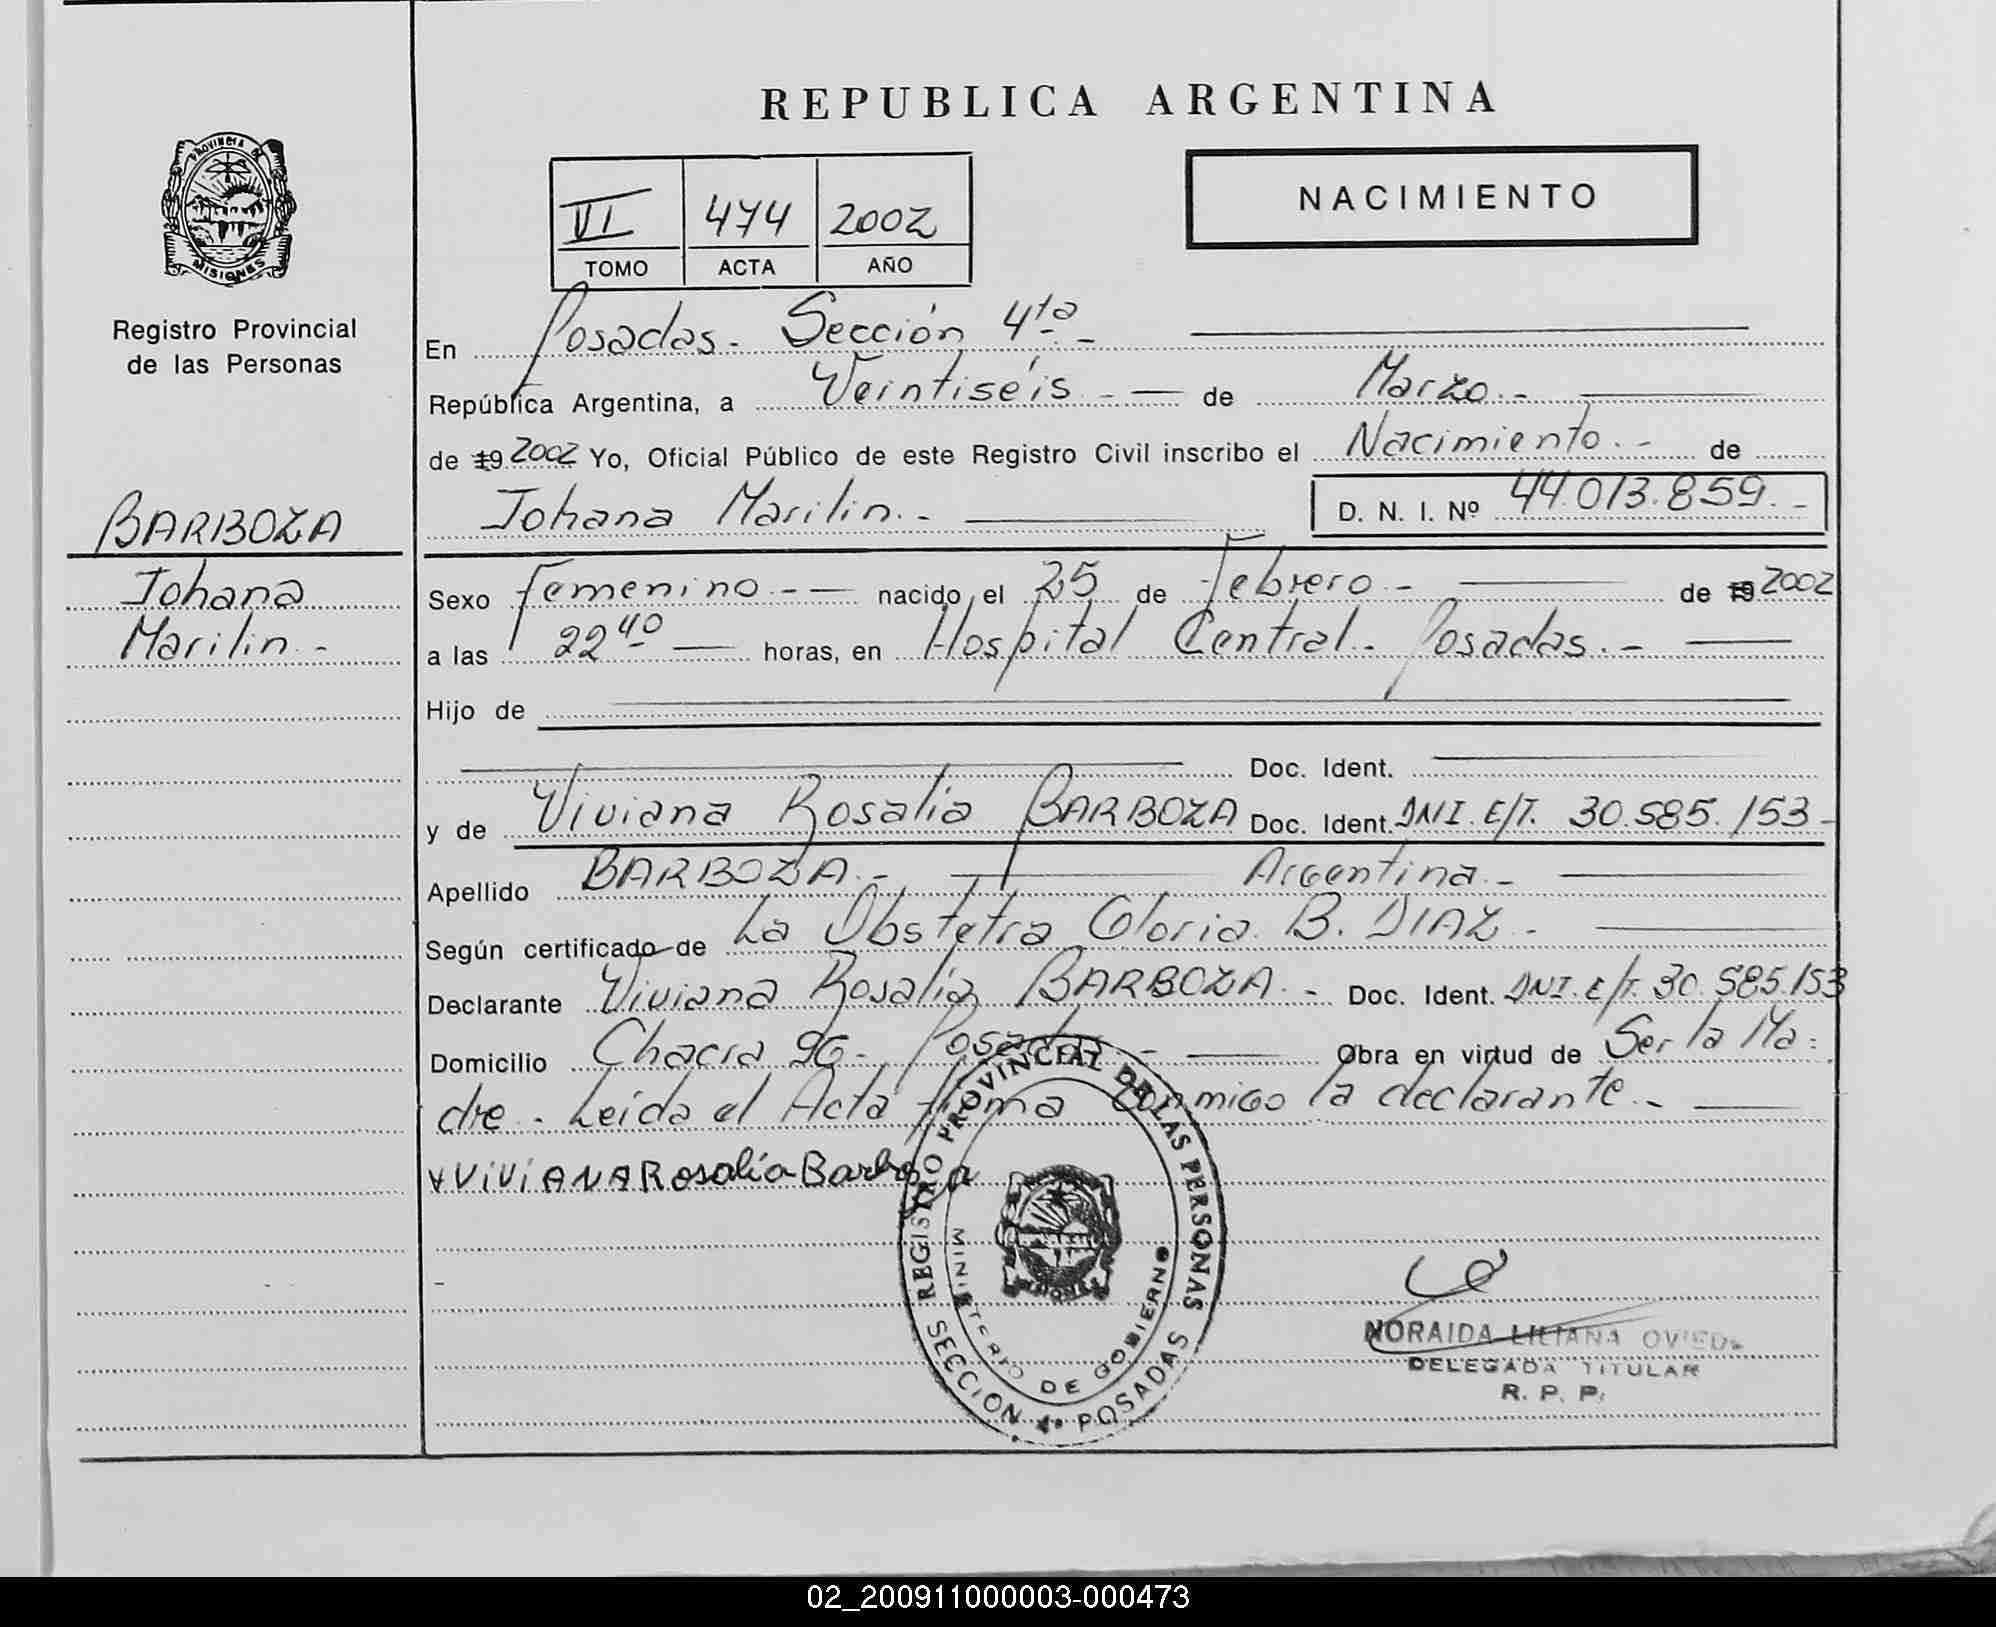 REPUBLICA ARGENTINA
PROVINCIA DE
MISIONES
Registro Provincial
de las Personas
VI 474 2002
TOMO ACTA AÑO
NACIMIENTO
En Posadas.- Sección 4ta.-
República Argentina, a Veintiseis.-- de Marzo.-
de 19 2002 Yo, Oficial Público de este Registro Civil inscribo el Nacimiento.- de
Johana Marilin.- D. N. I. Nº 44.013.859.-
BARBOZA
Johana
Marilin.-
Sexo Femenino.-- nacido el 25 de Febrero.- de 19 2002
a las 22 40 horas, en Hospital Central.- Posadas.-
Hijo de
Doc. Ident.
y de Viviana Rosalia BARBOZA Doc. Ident. DNI. E/T. 30.585.153-
Apellido BARBOZA.- Argentina.-
Según certificado de La Obstetra Gloria B. DIAZ.-
Declarante Viviana Rosalia BARBOZA.- Doc. Ident. DNI. E/T. 30.585.153
Domicilio Chacra 96.- Posadas.- Obra en virtud de Ser la Ma=
dre.- Leida el Acta firma conmigo la declarante.-
VIVIANA Rosalía Barboza
REGISTRO PROVINCIAL DE LAS PERSONAS
MINISTERIO DE GOBIERNO
SECCION 4º POSADAS
NORAIDA LILIANA OVIEDO
DELEGADA TITULAR
R. P. P.
02_200911000003-000473